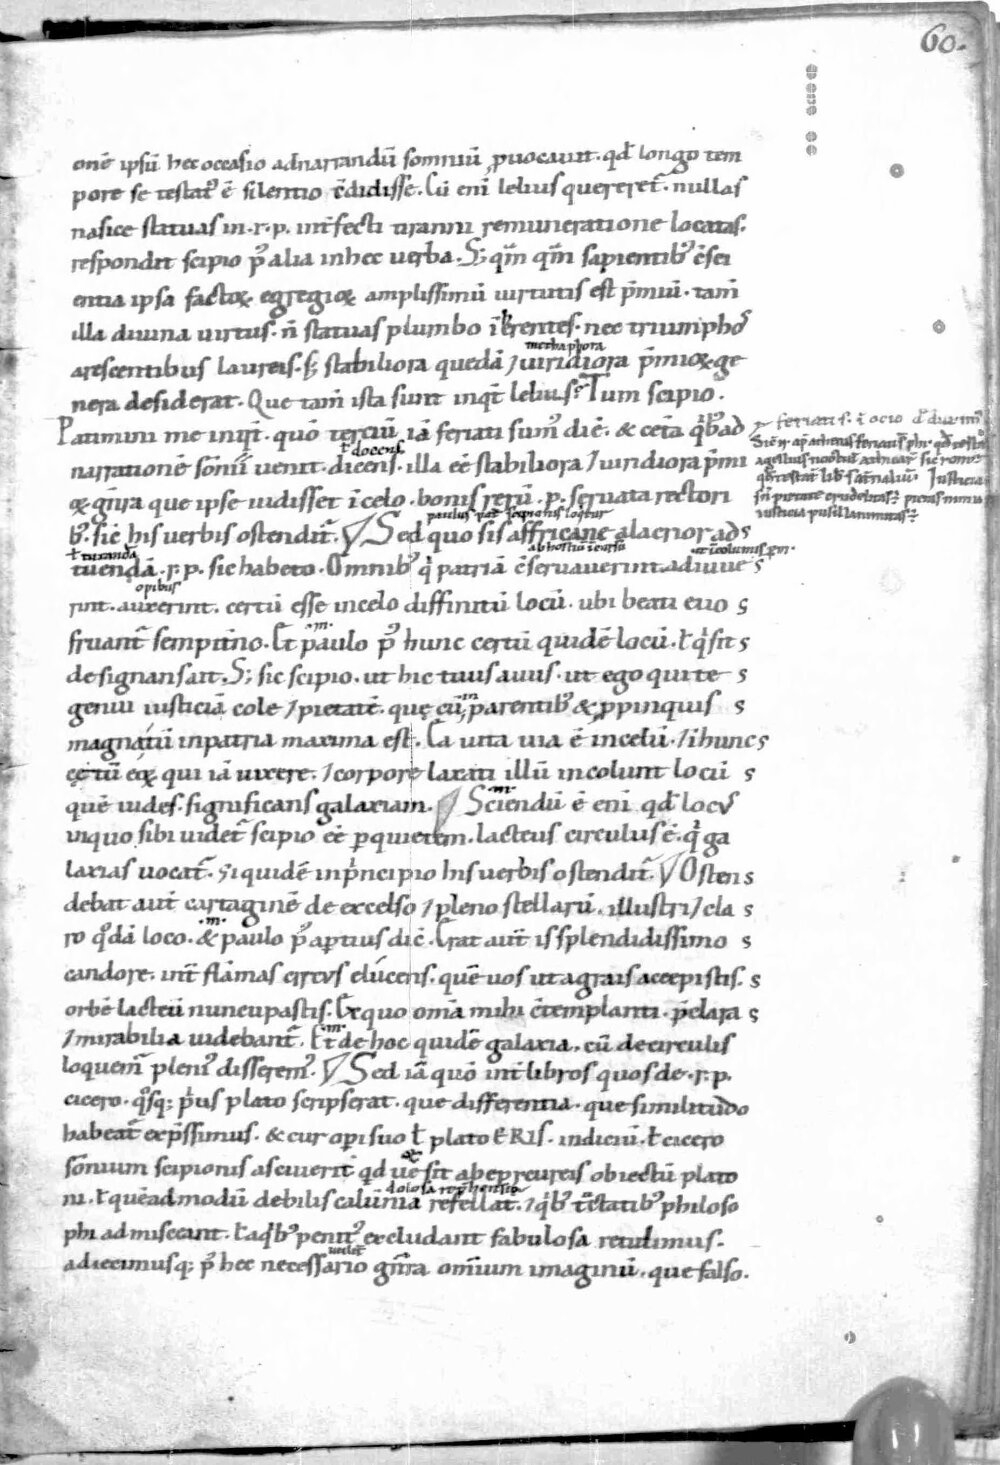 60.
onē ipsū hec occasio adnarrandū somniū ꝓuocauit. qđ longo tem
pore se testat᷑ ē silentio c̄didisse. Cū eni᷑ lelius quereret᷑. nullas
nasice statuas in .r.p. int̄fecti tiranni remuneratione locatas.
respondit scipio p᷒ alia inhec uerba. S; qm̄ qm̄ sapientib᷒ c̄sci
entia ipsa factoꝝ egregioꝝ amplissimū uirtutis est p̄miū. tam̄
illa diuina uirtus. n̄ statuas plumbo īherentes. nec triumphos
methaphora
arescentibus laureis. s; stabiliora quedā ⁊ uiridiora p̄mioꝝ ge
nera desiderat. Que tam̄ ista sunt inqt̄ lelius? Tum scipio.
Patimini me inqt̄. quō terciū iā feriati sum᷒ dic̄. & ceta q̄b᷒ ad
ł docens
narrationē sōnii uenit. dicens. illa eē stabiliora ⁊ uiridiora p̄mi
oꝝ gn̄ra que ipse uidisset ī celo. bonis rerū .p. seruata rectori
paulus pat̄ scipionis loquit᷑
b᷒. sic his uerbis ostendit᷑. Sed quo sis affricane alacrior ad
ł turandā
tuendā .r.p. sic habeto. Omnib᷒ q̇ patriā c̄seruauerint. adiuue
opibus
rint. auxerint. certū esse incelo diffinitū locū. ubi beati euo
.m.
fruant᷑ sempit̄no. Et paulo p᷒ hunc certū quidē locū. ł q̇ sit
designans ait. S; sic scipio. ut hic tuus auus. ut ego qui te
genui iusticiā cole ⁊ pietatē. quę cū ī parentib᷒ & ꝓpinquis
magna tū inpatria maxima est. Ea uita uia ē incelū. ⁊ ī hunc
cętū eoꝝ qui iā uixere. ⁊ corpore laxati illū incolunt locū
quē uides. significans galaxiam. Sciendū ē eni᷑ qđ locus
inquo sibi uidet᷑ scipio eē p quietem. lacteus circulus ē. q̇ ga
laxias uocat᷑. siquidē inp̄ncipio his uerbis ostendit᷑. Osten
debat aut̄ cartaginē de excelso ⁊ pleno stellarū. illustri ⁊ cla
.m.
ro qđā loco. & paulo p᷒ aptius dic̄. Erat aut̄ is splendidissimo
candore. int̄ flāmas circus elucens. quē uos ut agrais accepistis.
orbē lacteū nuncupastis. Ex quo omīa mihi c̄templanti. p̄clara
.m.
⁊ mirabilia uidebant᷑. Et de hoc quidē galaxia. cū decirculis
loquem᷑ pleni᷒ disserem᷒. Sed iā quō int̄ libros quos de .r.p.
cicero. q̊sq; ṗus plato scripserat. que differentia. que similitudo
habeat᷑ exp̄ssimus. & cur operi suo ł plato ERIS. indiciū. ł cicero
sōnium scipionis asciuerit qđ ue sit abepicureis obiectū plato
dolosa rephensio
ni. ł quēadmodū debilis calūnia refellat᷑. ⁊ q̇b᷒ tc̄tatib᷒ philoso
phi admisceant. ł aq̇b᷒ penit᷒ excludant fabulosa retulimus.
adiecimusq; p᷒ hec necessario gn̄ra omnium imaginū. que falso.